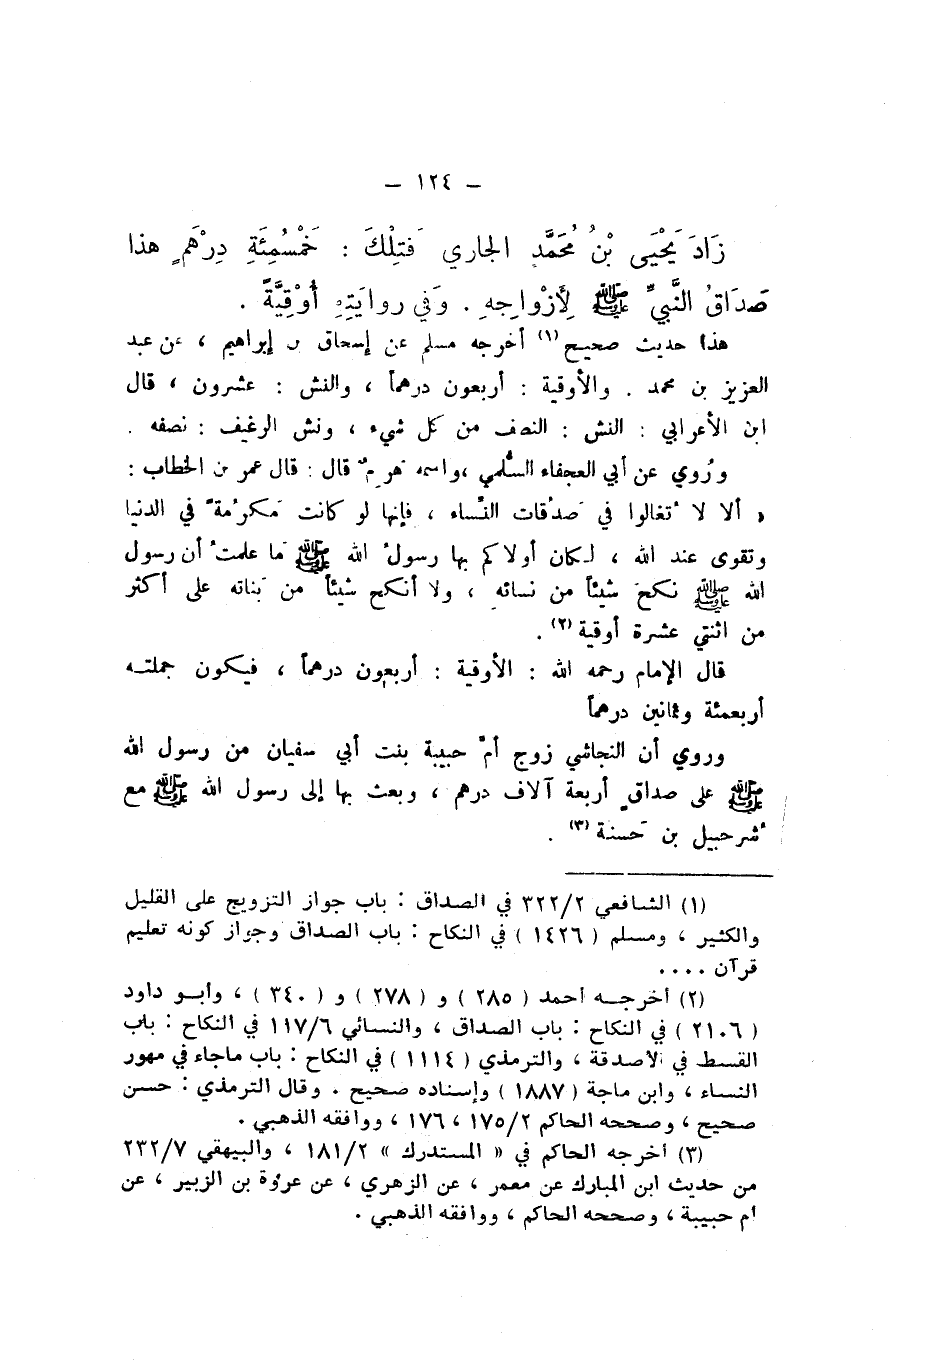 – ١٢٤ –
زَادَ يَحْيَى بْنُ مُحَمَّدٍ الجاري فَتِلْكَ : خَمْسُمِئَةِ دِرْهَمٍ هذا
صَدَاقُ النَّبيِّ ﷺ لِأَزْوَاجِهِ . وَفي روايَتِهِ أُوْقِيَّةً .
هذا حديث صحيح (١) أخرجه مسلم عن إسحاق بن إبراهيم ، عن عبد
العزيز بن محمد . والأوقية : أربعون درهماً ، والنش : عشرون ، قال
ابن الأعرابي : النش : النصف من كل شيء ، ونش الرغيف : نصفه .
ورُوي عن أبي العجفاء السُّلمي ،واسمه هَرِمٌ قال : قال عمر بن الخطاب :
« ألا لا تُغالوا في صَدُقات النِّساء ، فإنها لو كانت مَكرُمةً في الدنيا
وتقوى عند الله ، لكان أولاكم بها رسولُ الله ﷺ مَا علمتُ أن رسول
الله ﷺ نكحَ شيئاً من نسائه ، ولا أنكح شيئاً من بَناته على أكثر
من اثنتي عشرة أوقية (٢) .
قال الإمام رحمه الله : الأوقية : أربعون درهماً ، فيكون جملتـه
أربعمئة وثمانين درهماً
وروي أن النجاشي زوج أمَّ حبيبة بنت أبي سفيان من رسول الله
ﷺ على صداقٍ أربعة آلاف درهم ، وبعث بها إلى رسول الله ﷺ مع
شُرحبيل بن حَسنة (٣) .
(١) الشافعي ٣٢٢/٢ في الصداق : باب جواز التزويج على القليل
والكثير ، ومسلم ( ١٤٢٦ ) في النكاح : باب الصداق وجواز كونه تعليم
قرآن ....
(٢) أخرجـه أحمد ( ٢٨٥ ) و ( ٢٧٨ ) و ( ٣٤٠ ) ، وأبـو داود
( ٢١٠٦ ) في النكاح : باب الصداق ، والنسائي ١١٧/٦ في النكاح : باب
القسط في الأصدقة ، والترمذي ( ١١١٤ ) في النكاح : باب ماجاء في مهور
النساء ، وابن ماجة ( ١٨٨٧ ) وإسناده صحيح . وقال الترمذي : حسن
صحيح ، وصححه الحاكم ١٧٥/٢ ، ١٧٦ ، ووافقه الذهبي .
(٣) أخرجه الحاكم في « المستدرك » ١٨١/٢ ، والبيهقي ٢٣٢/٧
من حديث ابن المبارك عن معمر ، عن الزهري ، عن عروة بن الزبير ، عن
أم حبيبة ، وصححه الحاكم ، ووافقه الذهبي .